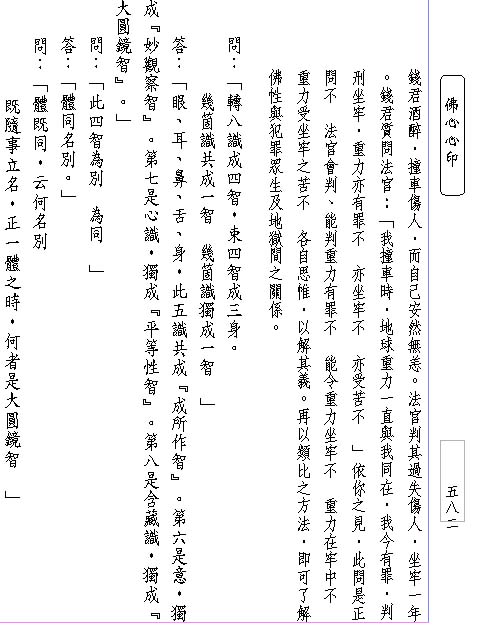 佛心心印
五八二
錢君酒醉，撞車傷人，而自己安然無恙。法官判其過失傷人，坐牢一年
。錢君質問法官：「我撞車時，地球重力一直與我同在，我今有罪，判
刑坐牢，重力亦有罪不　亦坐牢不　亦受苦不　」依你之見，此問是正
問不　法官會判、能判重力有罪不　能令重力坐牢不　重力在牢中不
重力受坐牢之苦不　各自思惟，以解其義。再以類比之方法，即可了解
佛性與犯罪眾生及地獄間之關係。
問：「轉八識成四智，束四智成三身。
幾箇識共成一智　幾箇識獨成一智　」
答：「眼、耳、鼻、舌、身，此五識共成『成所作智』。第六是意，獨
成『妙觀察智』。第七是心識，獨成『平等性智』。第八是含藏識，獨成『
大圓鏡智』。」
問：「此四智為別　為同　」
答：「體同名別。」
問：「體既同，云何名別
既隨事立名，正一體之時，何者是大圓鏡智　」